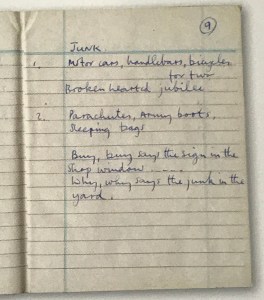 9
JUNK
1. Motor cars, handlebars, bicycles
for two
Broken hearted jubilee
2. Parachutes, Army boots,
Sleeping bags
Buy, buy says the sign in the
shop window .....
Why, why says the junk in the
yard.